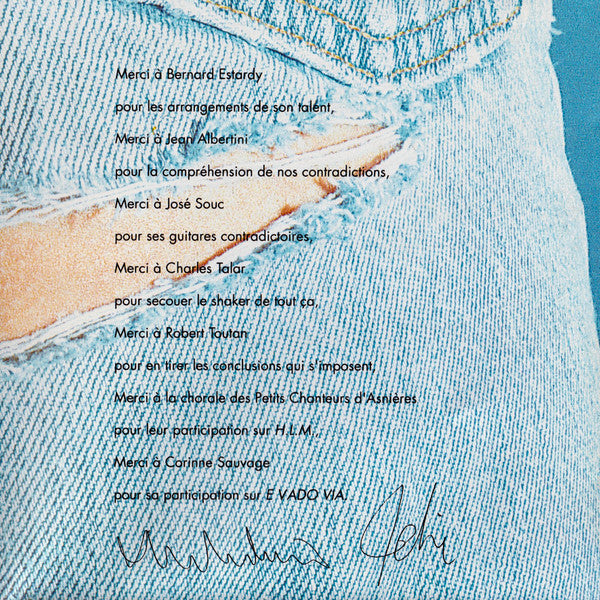 Merci à Bernard Estardy
pour les arrangements de son talent,
Merci à Jean Albertini
pour la compréhension de nos contradictions,
Merci à José Souc
pour ses guitares contradictoires,
Merci à Charles Talar
pour secouer le shaker de tout ça,
Merci à Robert Toutan
pour en tirer les conclusions qui s'imposent,
Merci à la chorale des Petits Chanteurs d'Asnières
pour leur participation sur H.L.M.,
Merci à Corinne Sauvage
pour sa participation sur E VADO VIA.